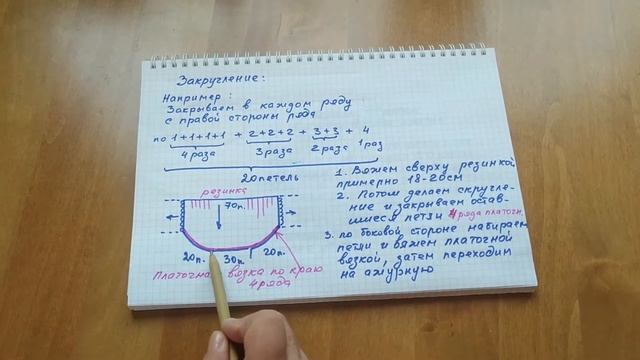 Закругление:
Например:
Закрываем в каждом ряду
с правой стороны ряда
по 1+1+1+1 + 2+2+2 + 3+3 + 4
4 раза 3 раза 2 раза 1 раз
20 петель
резинка
70п.
20п. 30п. 20п.
Платочная вязка по краю
4 ряда
1. Вяжем сверху резинкой
примерно 18-20см
2. Потом делаем скругле-
ние и закрываем остав-
шиеся петли 4 ряда платочн.
3. по боковой стороне набираем
петли и вяжем платочной
вязкой, затем переходим
на ажурную